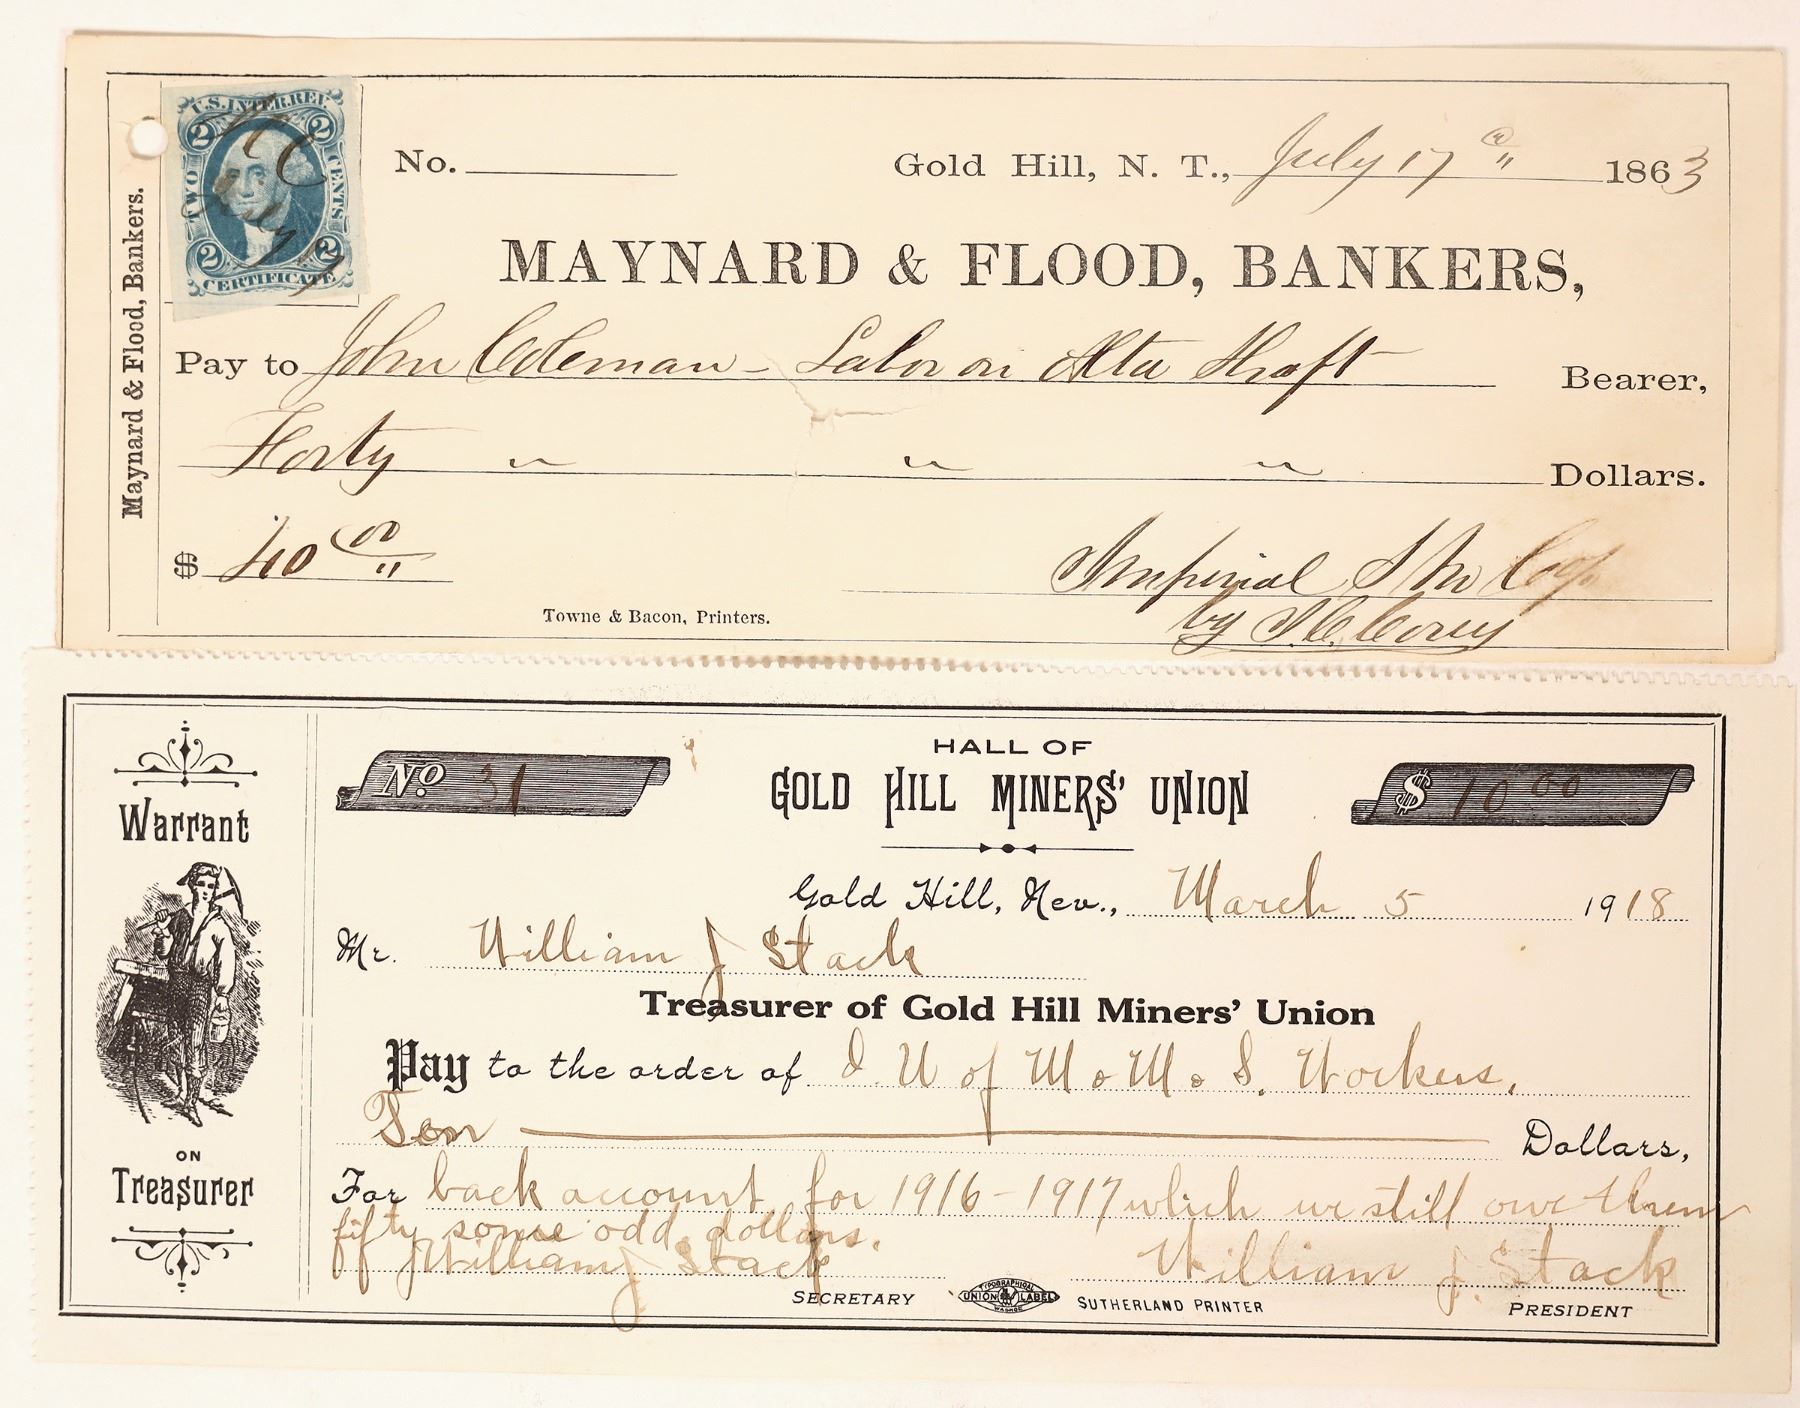 U.S. INTER. REV.
2 2
TWO CENTS
2 2
CERTIFICATE
July 17
Maynard & Flood, Bankers.
No. Gold Hill, N. T., July 17th 1863
MAYNARD & FLOOD, BANKERS,
Pay to John Coleman - Labor on Alta Shaft Bearer,
Forty " " " Dollars.
$ 40 00/"
Imperial S M Coy.
Towne & Bacon, Printers.
by
Warrant
ON
Treasurer
No 31
HALL OF
GOLD HILL MINERS' UNION
$ 10 00
Gold Hill, Nev., March 5 1918
Mr. William J Stack
Treasurer of Gold Hill Miners' Union
Pay to the order of I. U of M. M. S. Workers.
Ten Dollars,
For back account for 1916-1917 which we still owe them
fifty some odd dollars.
William J Stack William J. Stack
SECRETARY TYPOGRAPHICAL UNION LABEL SUTHERLAND PRINTER PRESIDENT